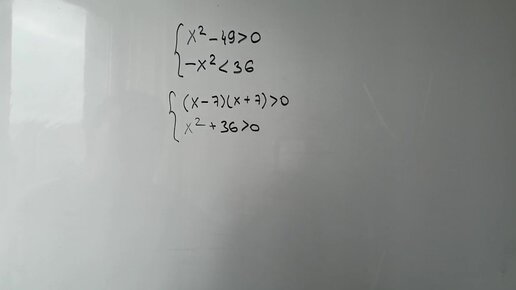 x² - 49 > 0
-x² < 36
(x - 7)(x + 7) > 0
x² + 36 > 0